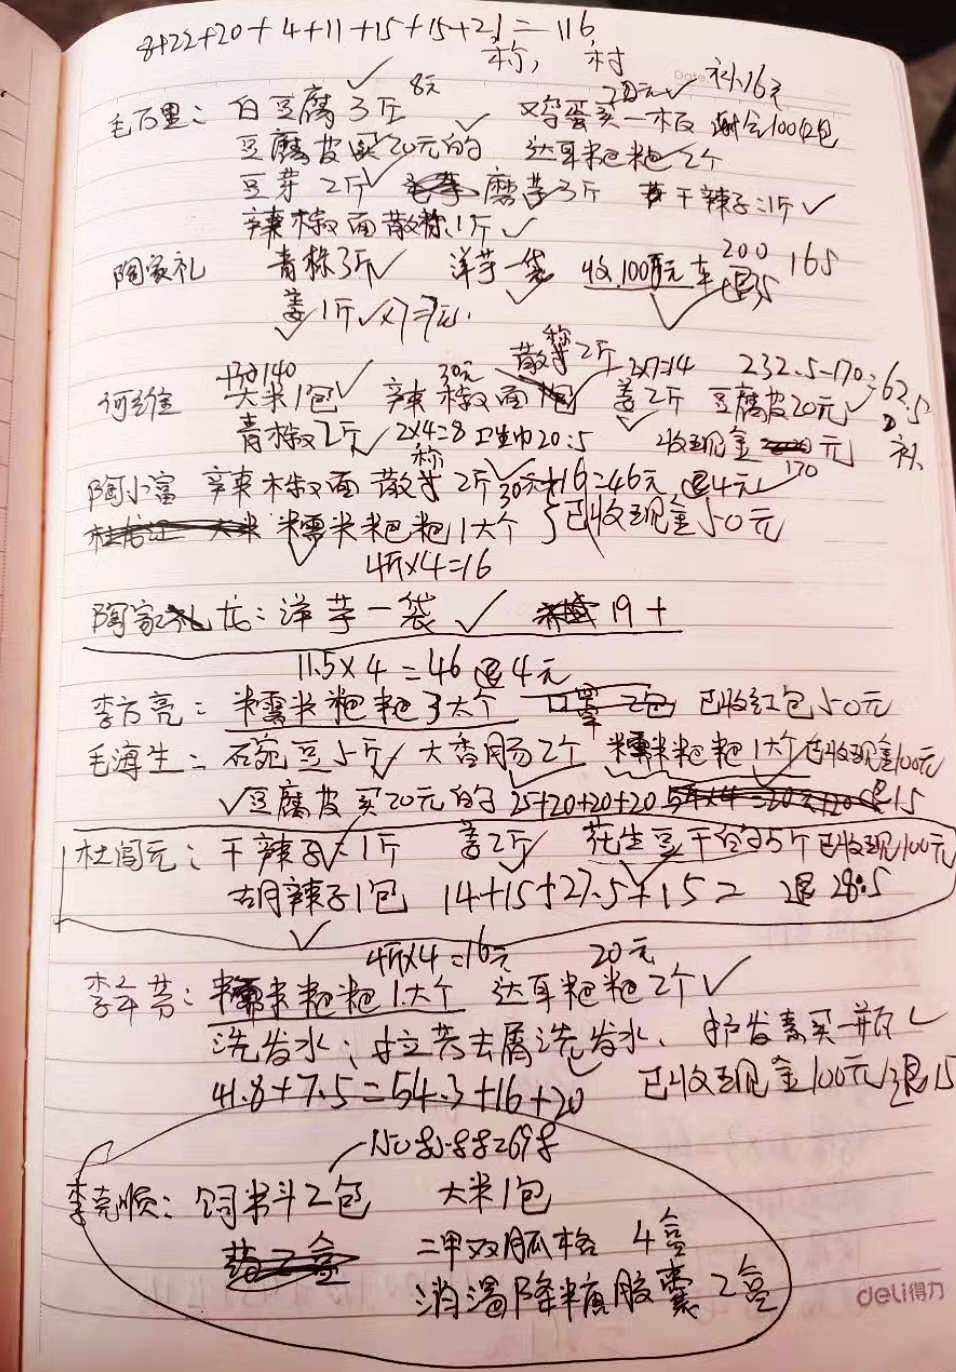 8+22+20+4+11+15+15+21=116
称, 村
补16元
8元 20元
毛万里: 白豆腐3斤 鸡蛋买一板 100红包
豆腐皮买20元的 达耳粑粑2个
豆芽2斤 磨芋3斤 干辣子:1斤
辣椒面散称1斤
200 165
陶家礼 青椒3斤 洋芋一袋 收100元 退35
姜1斤×7=7元.
称
散 2斤 2×7=14 232.5-170=62.5
140 30元
何维 大米1包 辣椒面 姜2斤 豆腐皮20元
青椒2斤 2×4=8 卫生巾20.5 收现金 元 补
170
称
陶小富 辣椒面散 2斤 30元+16=46元 退4元
糯米粑粑1大个 已收现金50元
4斤×4=16
陶家龙: 洋芋一袋 19+
11.5×4=46 退4元
李方亮: 糯米粑粑3大个 口罩2包 已收红包50元
毛海生: 石豌豆5斤 大香肠2个 糯米粑粑1大个 已收现金100元
豆腐皮买20元的 25+20+20+20 退15
杜闯元: 干辣子1斤 姜2斤 花生豆干的5个 已收现100元
胡辣子1包 14+15+27.5+15= 退28.5
4斤×4=16元 20元
李年芳: 糯米粑粑1大个 达耳粑粑2个
洗发水: 拉芳去屑洗发水、护发素买一瓶
41.8+7.5=54.3+16+20 已收现金100元 退15
李克顺: 饲料2包 大米1包
二甲双胍格 4盒
消渴降糖胶囊2盒
deli得力